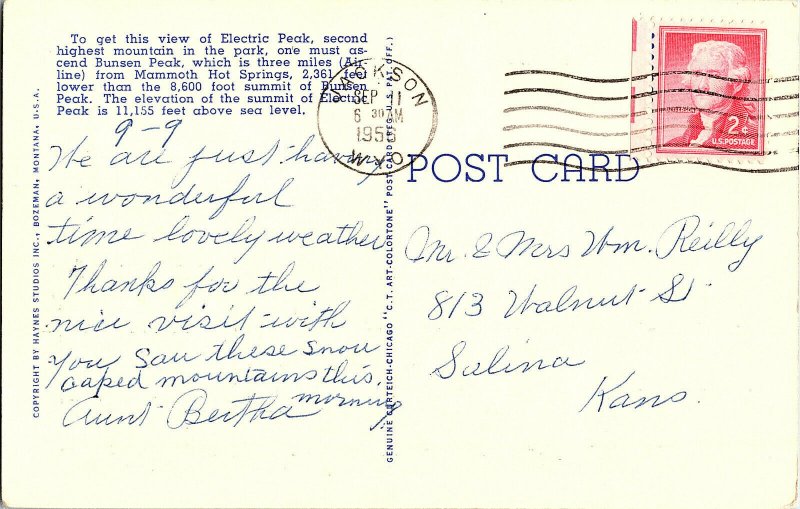 To get this view of Electric Peak, second
highest mountain in the park, one must as-
cend Bunsen Peak, which is three miles (Air-
line) from Mammoth Hot Springs, 2,361 feet
lower than the 8,600 foot summit of Bunsen
Peak. The elevation of the summit of Electric
Peak is 11,155 feet above sea level.
9-9
We are just having
a wonderful
time lovely weather
Thanks for the
nice visit with
you Saw these snow
caped mountains this
morning
Aunt Bertha
COPYRIGHT BY HAYNES STUDIOS INC., BOZEMAN, MONTANA, U.S.A.
GENUINE CURTEICH-CHICAGO "C.T. ART-COLORTONE" POST CARD (REG. U.S. PAT. OFF.)
JACKSON
SEP 11
6 30 AM
1956
WYO.
2¢
U.S. POSTAGE
POST CARD
Mr. & Mrs Wm. Reilly
813 Walnut St
Salina
Kans.